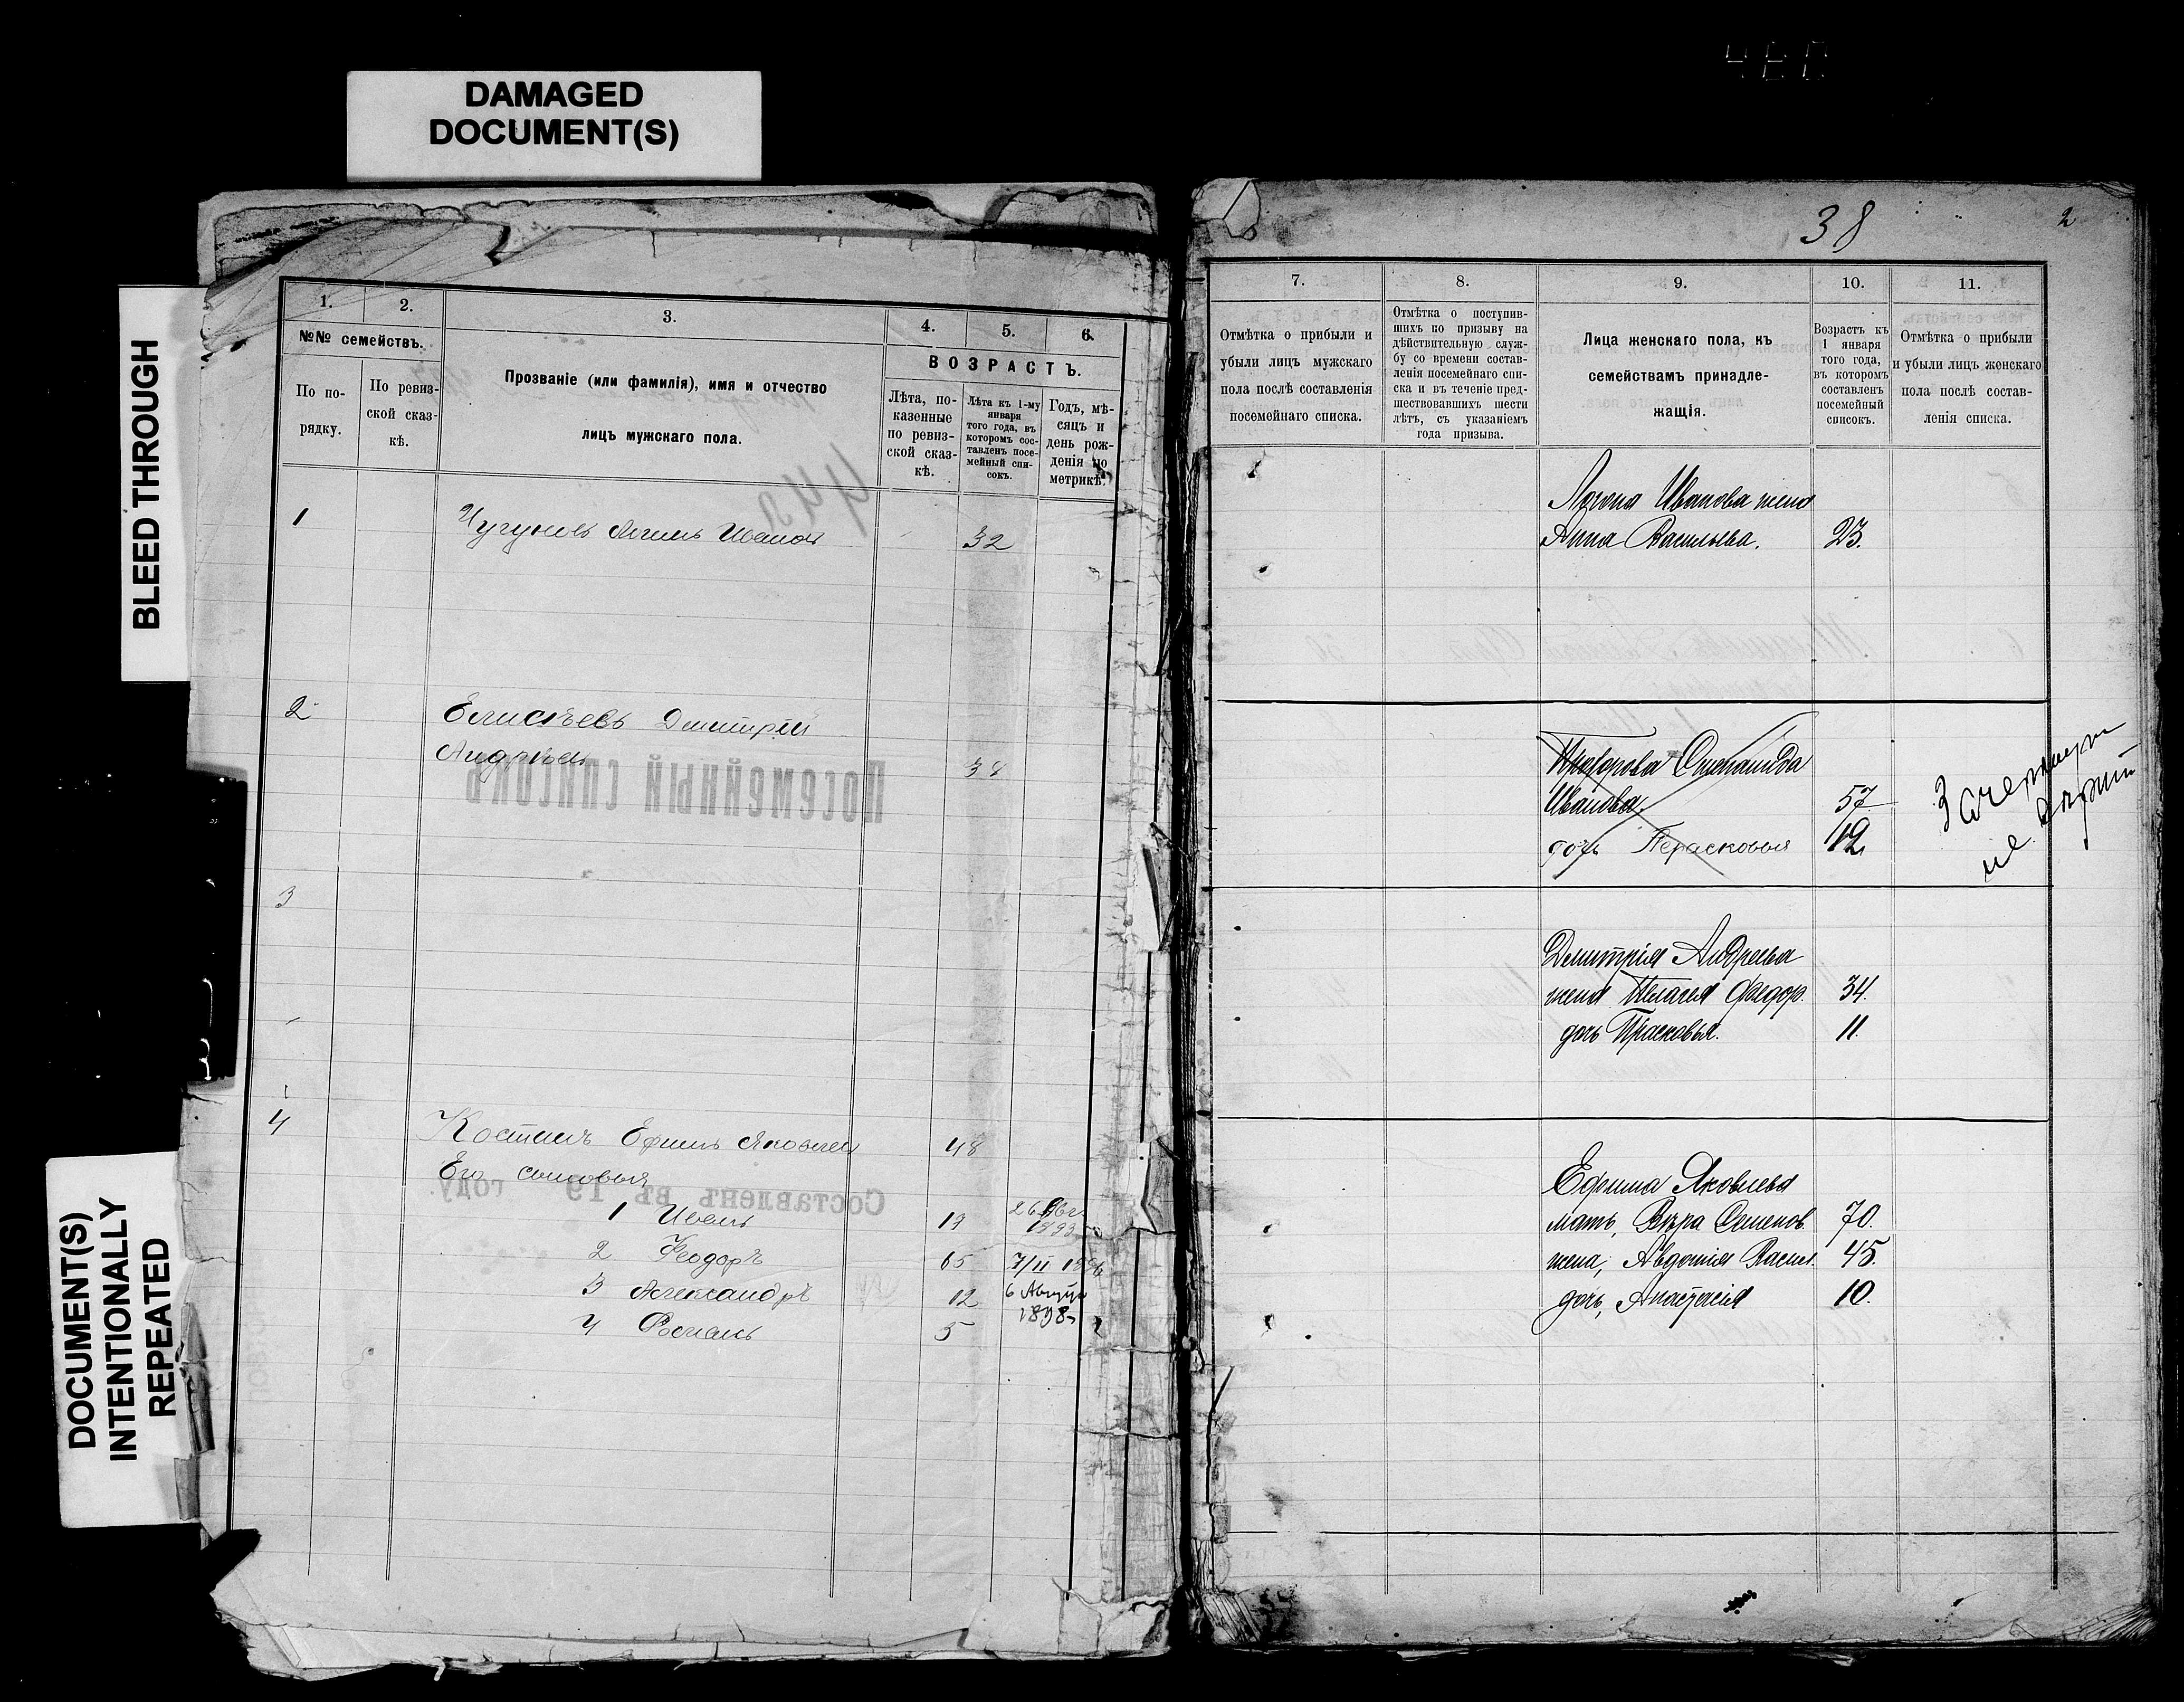 DAMAGED
DOCUMENT(S)
BLEED THROUGH
DOCUMENT(S)
INTENTIONALLY
REPEATED
1.
2.
3.
4.
5.
6.
№№ семействъ.
По по-
рядку.
По ревиз-
ской сказ-
кѣ.
Прозваніе (или фамилія), имя и отчество
лицъ мужскаго пола.
ВОЗРАСТЪ.
Лѣта, по-
казенные
по ревиз-
ской сказ-
кѣ.
Лѣта къ 1-му
января
того года, въ
которомъ сос-
тавленъ посе-
мейный спи-
сокъ.
Годъ, мѣ-
сяцъ и
день рож-
денія по
метрикѣ.
1 Чугуновъ Логинъ Иванов 32
2 Елисѣевъ Дмитрій
Андреев 38
Посемейный списокъ
3
4 Костинъ Ефимъ Яковлев 48
Его сыновья
Составленъ въ 19 году.
1 Иванъ 17
2 Феодоръ 15 7/II
3 Александръ 12 6 Августа
1898
4 Романъ 5
38
2
7.
8.
9.
10.
11.
Отмѣтка о прибыли и
убыли лицъ мужскаго
пола послѣ составленія
посемейнаго списка.
Отмѣтка о поступив-
шихъ по призыву на
дѣйствительную служ-
бу со времени состав-
ленія посемейнаго спи-
ска и въ теченіе пред-
шествовавшихъ шести
лѣтъ, съ указаніемъ
года призыва.
Лица женскаго пола, къ
семействамъ принадле-
жащія.
Возрастъ къ
1 января
того года,
въ которомъ
составленъ
посемейный
списокъ.
Отмѣтка о прибыли
и убыли лицъ женскаго
пола послѣ состав-
ленія списка.
Логина Иванова жена
Анна Васильева. 23.
Иванова 57
дочь Парасковья 12
не вѣрить
Дмитрія Андреева
жена Пелагея Федор. 34.
дочь Прасковья. 11.
Ефима Яковлева
мать, Вѣра Семенов. 70.
жена, Авдотія Васил. 45.
дочь, Анастасія 10.